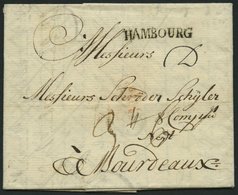 HAMBOURG
Messieurs D
Messieurs Schröder Schÿler
& Comp
à Bourdeaux